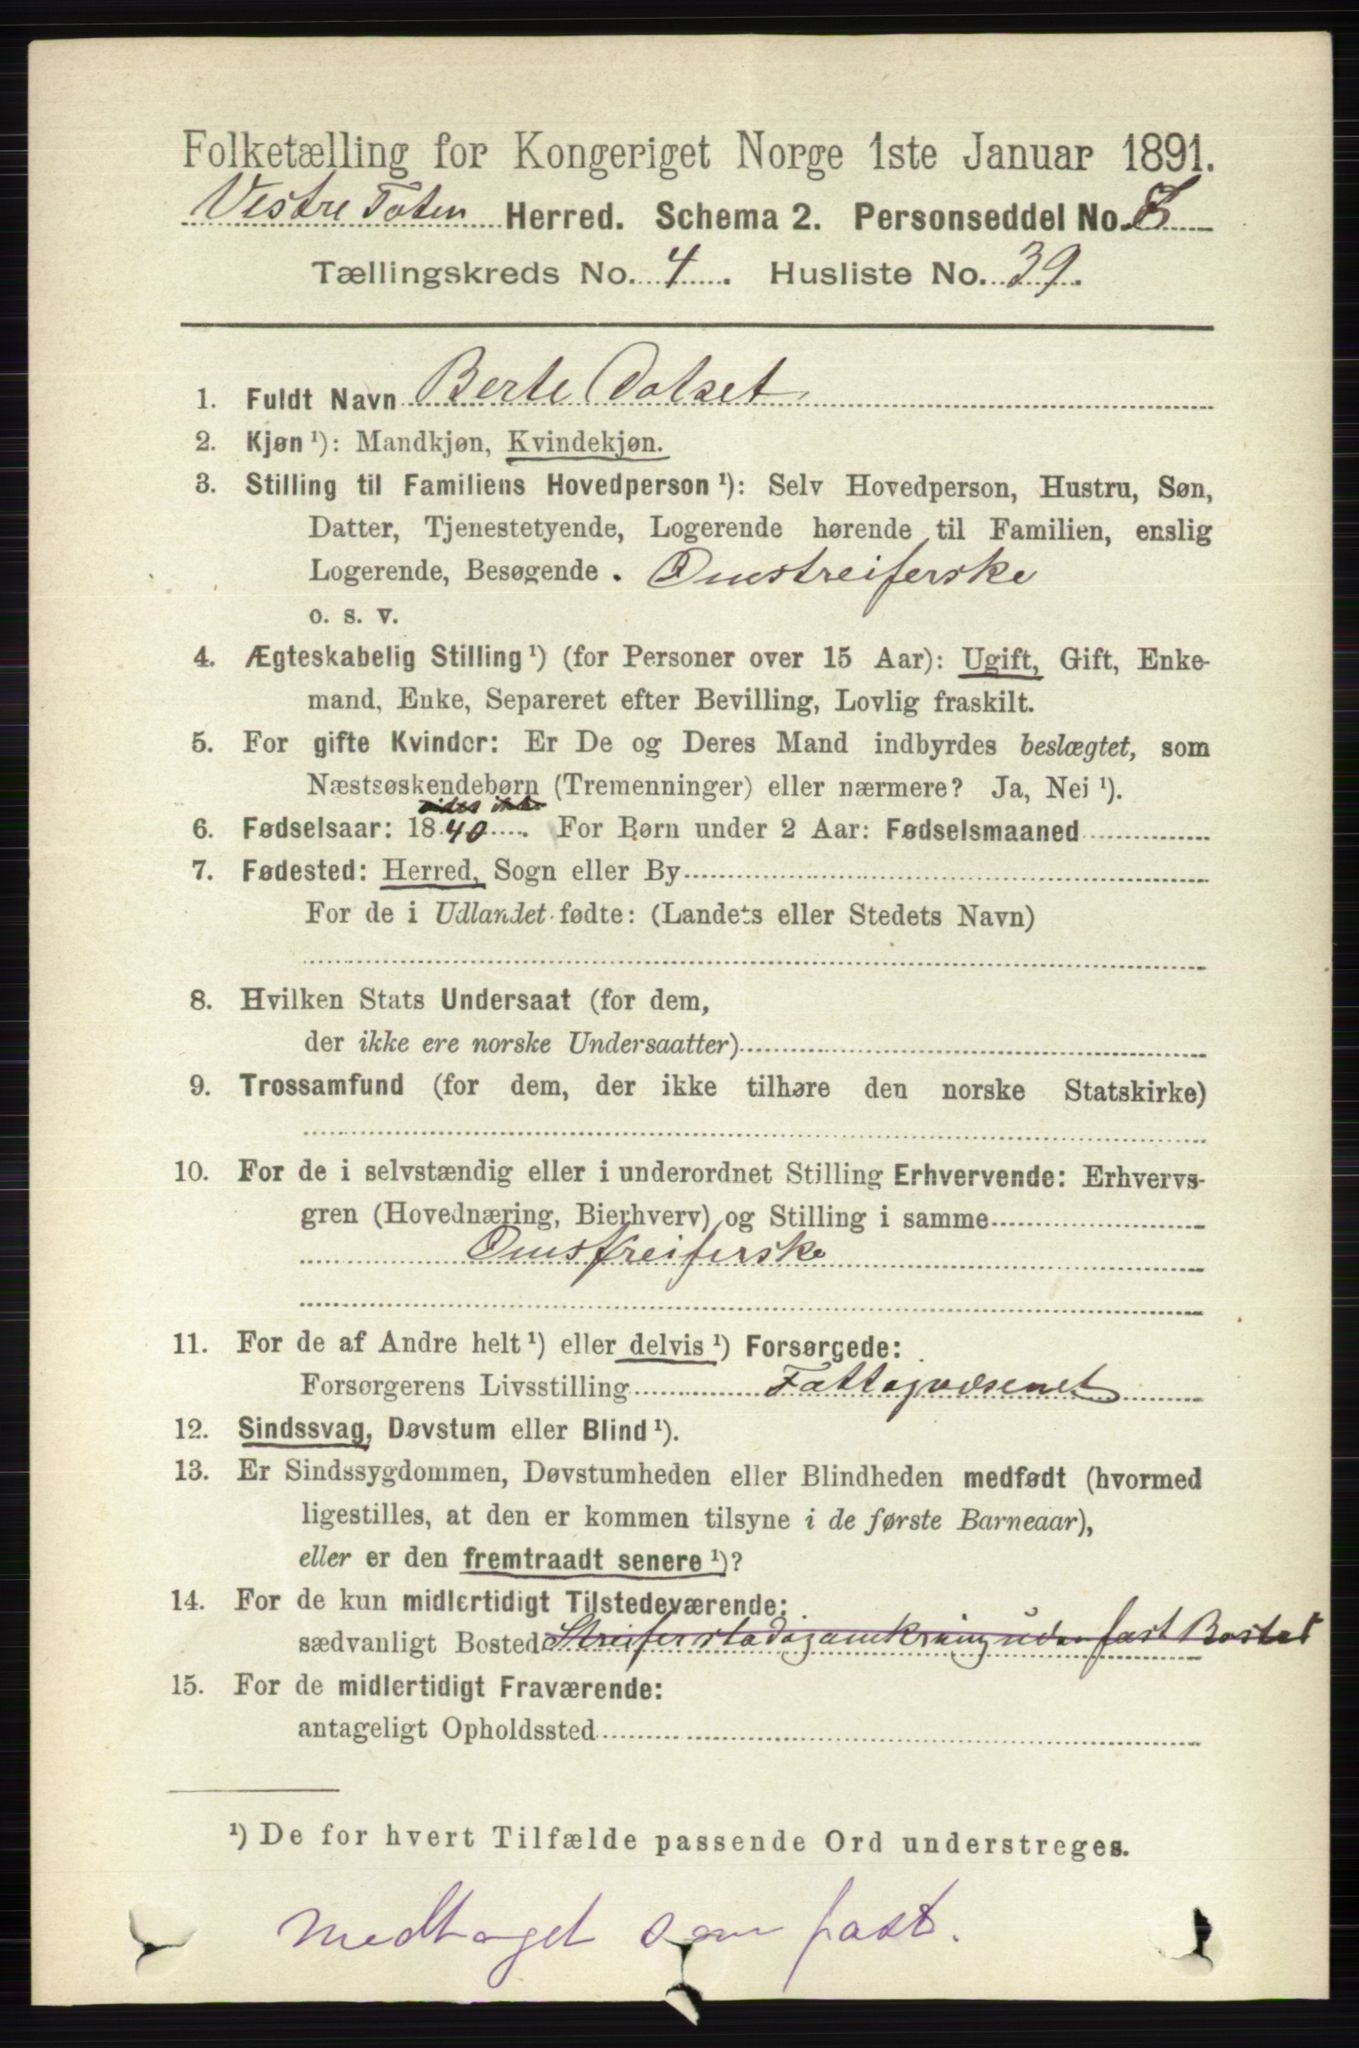 Folketælling for Kongeriget Norge 1ste Januar 1891.
Vestre Toten Herred. Schema 2. Personseddel No.
Tællingskreds No. 4. Husliste No. 39.
1. Fuldt Navn Berte Dolset
2. Kjøn¹): Mandkjøn, Kvindekjøn.
3. Stilling til Familiens Hovedperson¹): Selv Hovedperson, Hustru, Søn,
Datter, Tjenestetyende, Logerende hørende til Familien, enslig
Logerende, Besøgende . Omstreiferske
o. s. v.
4. Ægteskabelig Stilling¹) (for Personer over 15 Aar): Ugift, Gift, Enke-
mand, Enke, Separeret efter Bevilling, Lovlig fraskilt.
5. For gifte Kvinder: Er De og Deres Mand indbyrdes beslægtet, som
Næstsøskendebørn (Tremenninger) eller nærmere? Ja, Nei¹).
vides ikke
6. Fødselsaar: 1840. For Børn under 2 Aar: Fødselsmaaned
7. Fødested: Herred, Sogn eller By
For de i Udlandet fødte: (Landets eller Stedets Navn)
8. Hvilken Stats Undersaat (for dem,
der ikke ere norske Undersaatter)
9. Trossamfund (for dem, der ikke tilhøre den norske Statskirke)
10. For de i selvstændig eller i underordnet Stilling Erhvervende: Erhvervs-
gren (Hovednæring, Bierhverv) og Stilling i samme
Omstreiferske
11. For de af Andre helt¹) eller delvis¹) Forsørgede:
Forsørgerens Livsstilling Fattigvæsenet
12. Sindssvag, Døvstum eller Blind¹).
13. Er Sindssygdommen, Døvstumheden eller Blindheden medfødt (hvormed
ligestilles, at den er kommen tilsyne i de første Barneaar),
eller er den fremtraadt senere¹)?
14. For de kun midlertidigt Tilstedeværende:
sædvanligt Bosted Streifer stadig omkring uden fast Bosted
15. For de midlertidigt Fraværende:
antageligt Opholdssted
¹) De for hvert Tilfælde passende Ord understreges.
Medtaget som fast.